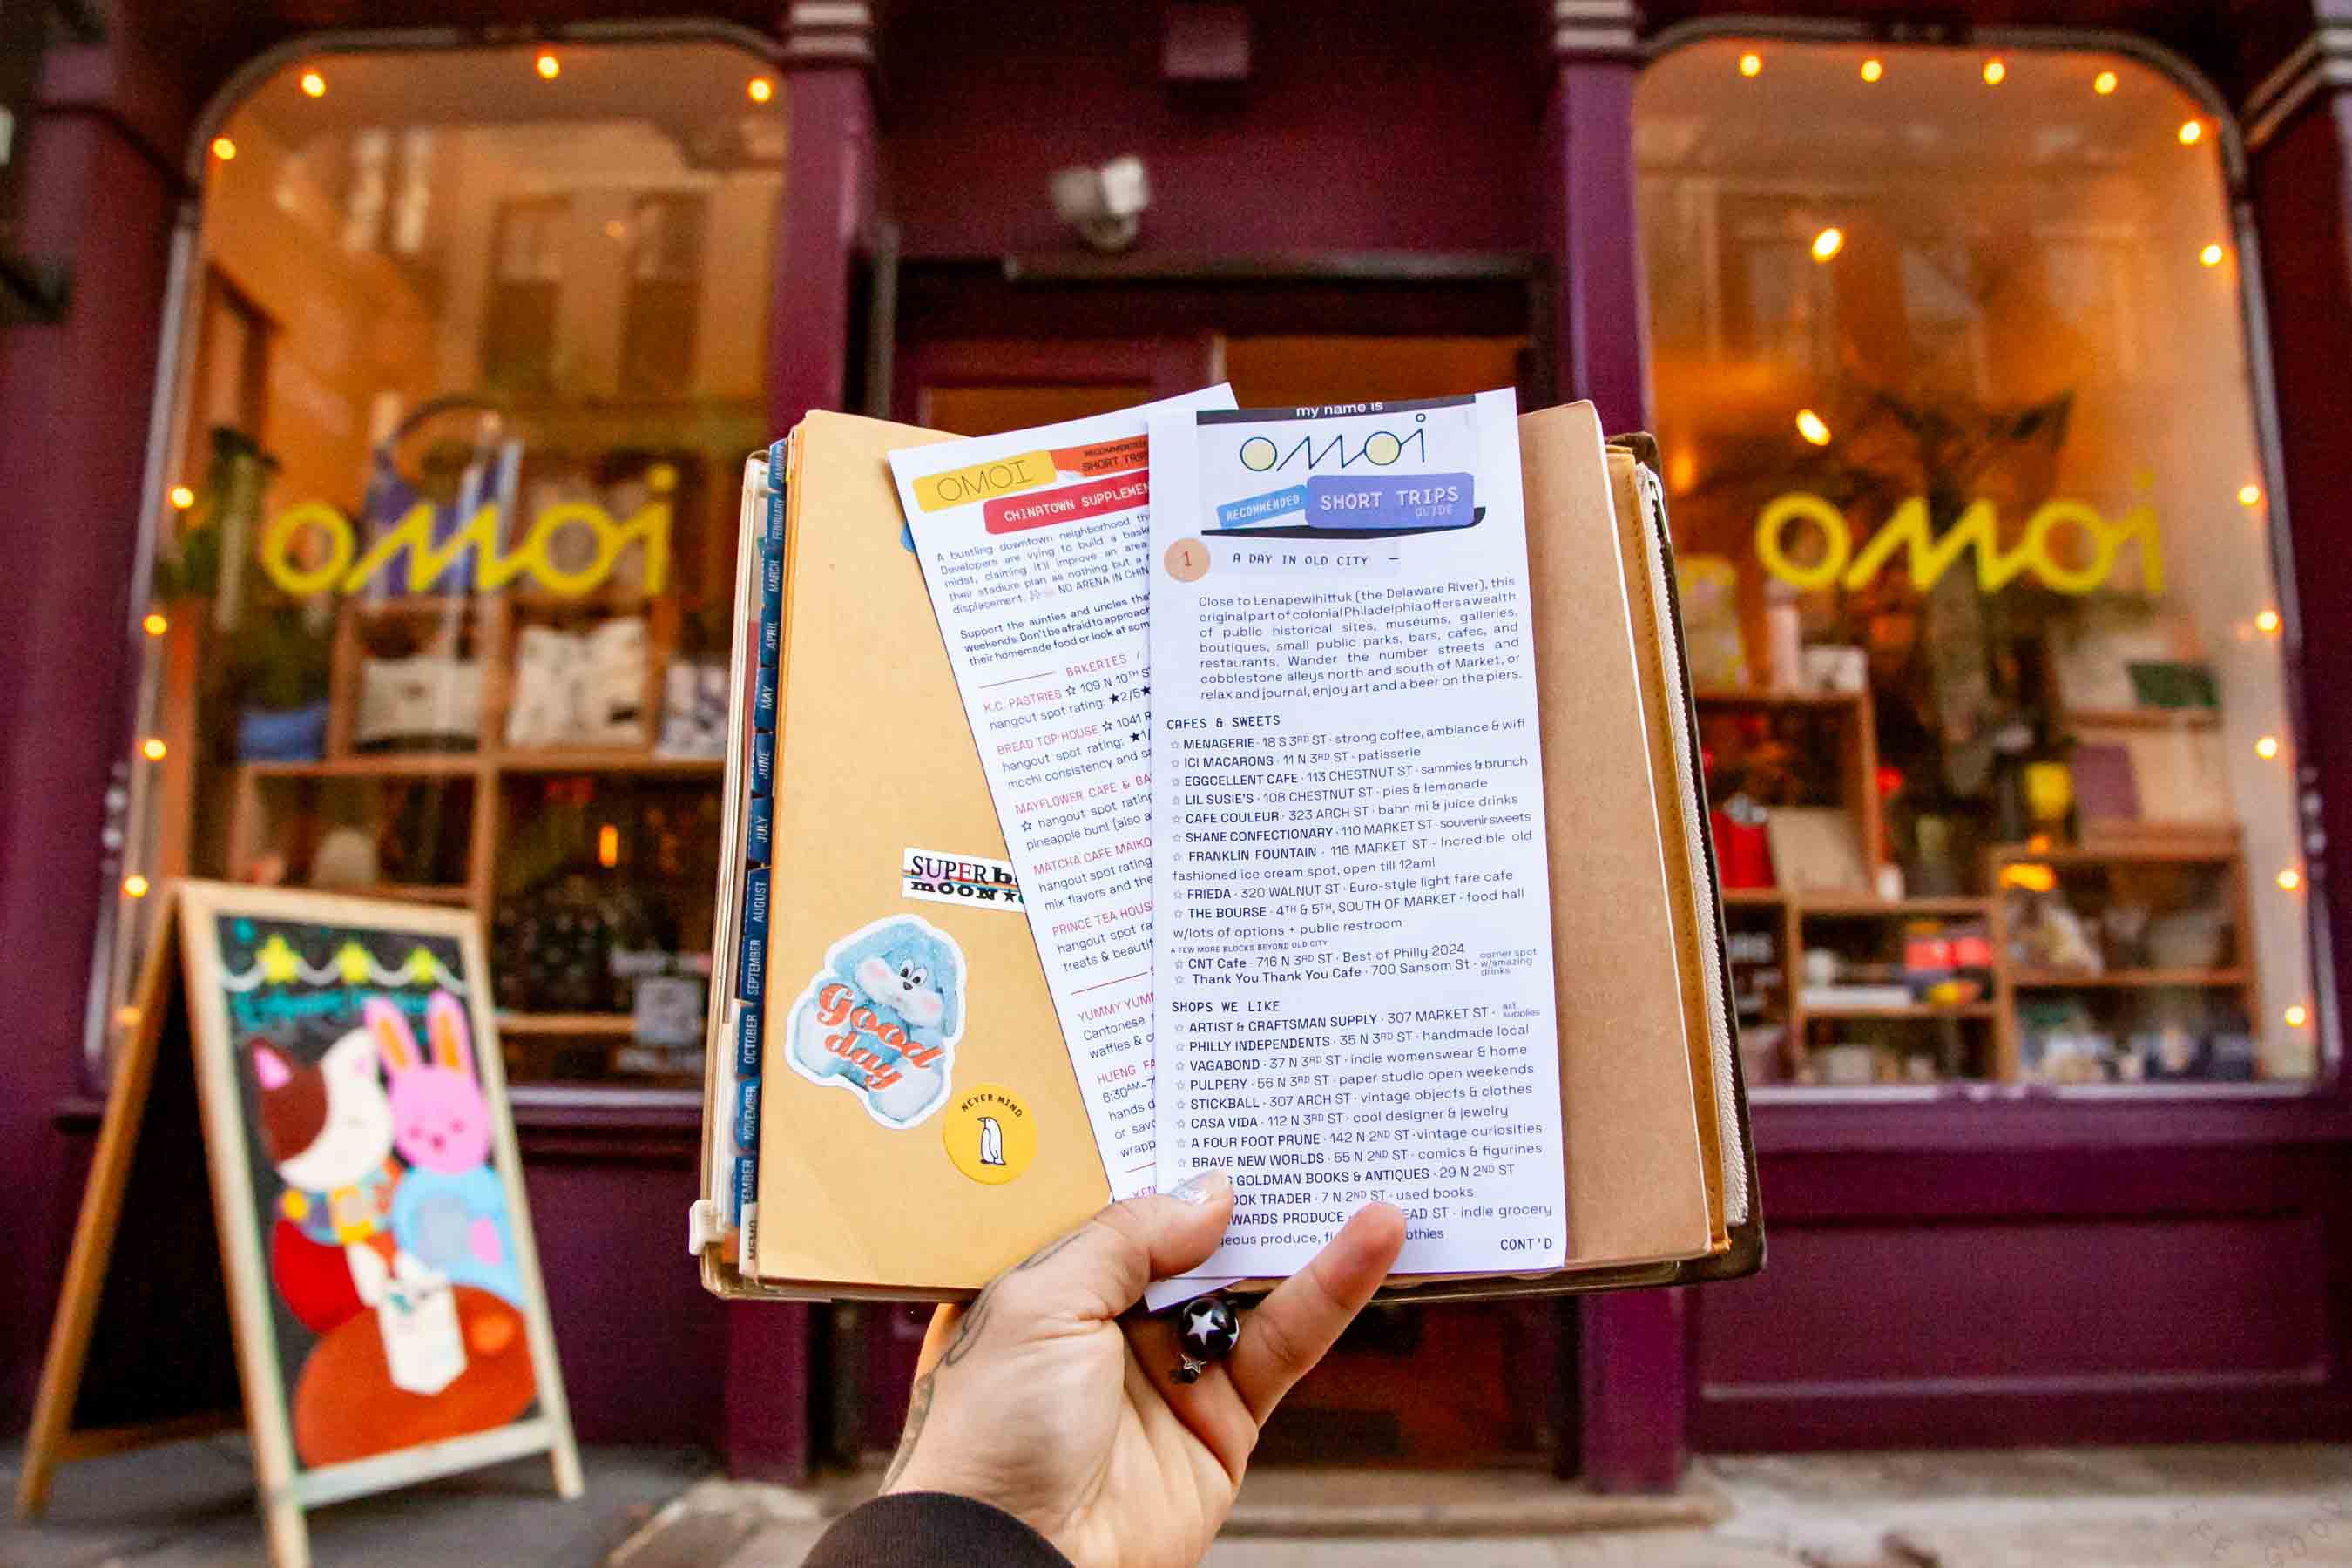 omoi
omoi
JANUARY
FEBRUARY
MARCH
APRIL
MAY
JUNE
JULY
AUGUST
SEPTEMBER
OCTOBER
NOVEMBER
EMBER
MEMO
SUPER
MOON ★
Good
day
NEVER MIND
OMOI
RECOMMENDED
SHORT TRIPS
CHINATOWN SUPPLEMEN
A bustling downtown neighborhood th
Developers are vying to build a baske
midst, claiming it'll improve an area
their stadium plan as nothing but a
displacement. NO ARENA IN CHIN
Support the aunties and uncles tha
weekends. Don't be afraid to approach
their homemade food or look at som
BAKERIES /
K.C. PASTRIES ☆ 109 N 10TH S
hangout spot rating: ★2/5★
BREAD TOP HOUSE ☆ 1041 R
hangout spot rating: ★1/
mochi consistency and s
MAYFLOWER CAFE & BA
☆ hangout spot ratin
pineapple bun! (also a
MATCHA CAFE MAIKO
hangout spot rating
mix flavors and the
PRINCE TEA HOUS
hangout spot ra
treats & beautif
YUMMY YUM
Cantonese
waffles & c
HUENG FA
6:30AM-7
hands d
or savo
wrapp
KEN
my name is
omoi
RECOMMENDED SHORT TRIPS
GUIDE
1 A DAY IN OLD CITY –
Close to Lenapewihittuk (the Delaware River), this
original part of colonial Philadelphia offers a wealth
of public historical sites, museums, galleries,
boutiques, small public parks, bars, cafes, and
restaurants. Wander the number streets and
cobblestone alleys north and south of Market, or
relax and journal, enjoy art and a beer on the piers.
CAFES & SWEETS
☆ MENAGERIE · 18 S 3RD ST · strong coffee, ambiance & wifi
☆ ICI MACARONS · 11 N 3RD ST · patisserie
☆ EGGCELLENT CAFE · 113 CHESTNUT ST · sammies & brunch
☆ LIL SUSIE'S · 108 CHESTNUT ST · pies & lemonade
☆ CAFE COULEUR · 323 ARCH ST · bahn mi & juice drinks
☆ SHANE CONFECTIONARY · 110 MARKET ST · souvenir sweets
☆ FRANKLIN FOUNTAIN · 116 MARKET ST · Incredible old
fashioned ice cream spot, open till 12am!
☆ FRIEDA · 320 WALNUT ST · Euro-style light fare cafe
☆ THE BOURSE · 4TH & 5TH, SOUTH OF MARKET · food hall
w/lots of options + public restroom
A FEW MORE BLOCKS BEYOND OLD CITY
☆ CNT Cafe · 716 N 3RD ST · Best of Philly 2024
☆ Thank You Thank You Cafe · 700 Sansom St · corner spot
w/amazing
drinks
SHOPS WE LIKE
☆ ARTIST & CRAFTSMAN SUPPLY · 307 MARKET ST · art
supplies
☆ PHILLY INDEPENDENTS · 35 N 3RD ST · handmade local
☆ VAGABOND · 37 N 3RD ST · indie womenswear & home
☆ PULPERY · 56 N 3RD ST · paper studio open weekends
☆ STICKBALL · 307 ARCH ST · vintage objects & clothes
☆ CASA VIDA · 112 N 3RD ST · cool designer & jewelry
☆ A FOUR FOOT PRUNE · 142 N 2ND ST · vintage curiosities
☆ BRAVE NEW WORLDS · 55 N 2ND ST · comics & figurines
GOLDMAN BOOKS & ANTIQUES · 29 N 2ND ST
OOK TRADER · 7 N 2ND ST · used books
WARDS PRODUCE · EAD ST · indie grocery
geous produce, othies
CONT'D